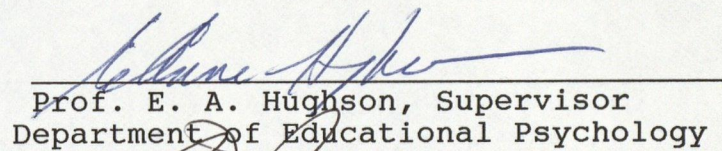 Prof. E. A. Hughson, Supervisor
Department of Educational Psychology